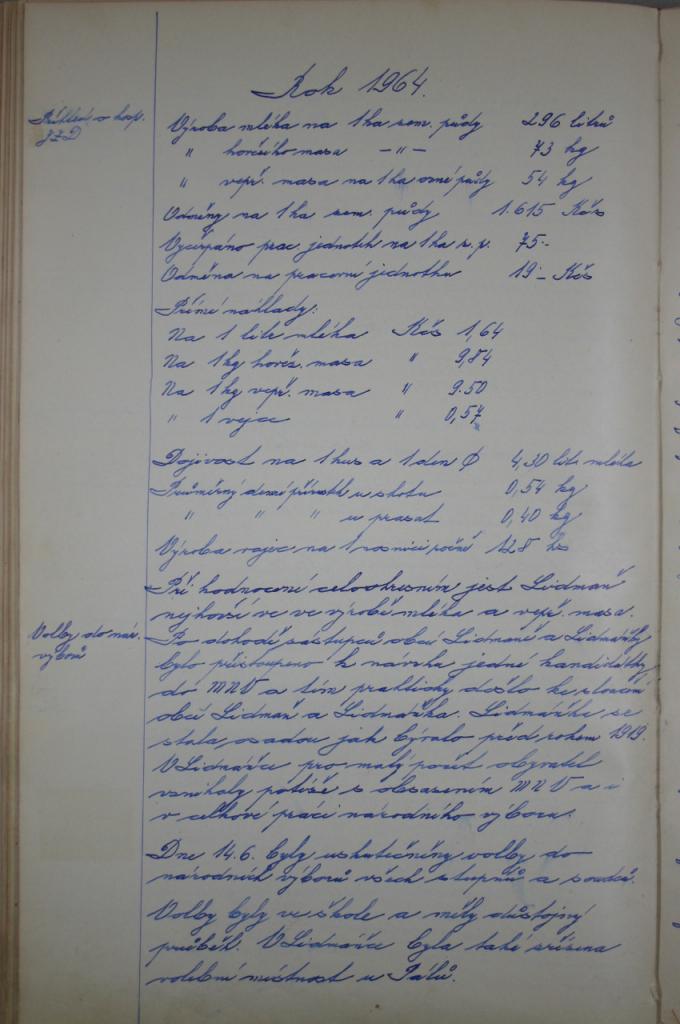 Rok 1964.
hosp.
JZD
Výroba mléka na 1 ha zem. půdy 296 litrů
" hovězího masa —"— 73 kg
" vepř. masa na 1 ha orné půdy 54 kg
Odměny na 1 ha zem. půdy 1.615 Kčs
Vyčerpáno prac. jednotek na 1 ha z. p. 75.-
Odměna na pracovní jednotku 19.- Kčs
Přímé náklady:
Na 1 litr mléka Kčs 1,64
Na 1 kg hověz. masa " 9,84
Na 1 kg vepř. masa " 9.50
" 1 vejce " 0,57
Dojivost na 1 kus a 1 den Ø 4,30 litr. mléka
Průměrný denní přírůstek u skotu 0,54 kg
" " " u prasat 0,40 kg
Výroba vajec na 1 nosnici ročně 128 ks
Při hodnocení celookresním jest Lidmaň
nejhorší ve ve výrobě mléka a vepř. masa.
Volby do nár.
výborů
Po dohodě zástupců obcí Lidmaně a Lidmaňky
bylo přistoupeno k návrhu jedné kandidátky
do MNV a tím prakticky došlo ke sloučení
obcí Lidmaň a Lidmaňka. Lidmaňka se
stala osadou jak bývalo před rokem 1919.
V Lidmaňce pro malý počet obyvatel
vznikaly potíže s obsazením MNV a i
v celkové práci národního výboru.
Dne 14.6. byly uskutečněny volby do
národních výborů všech stupňů a soudců.
Volby byly ve škole a měly důstojný
průběh. V Lidmaňce byla také zřízena
volební místnost u Pálů.